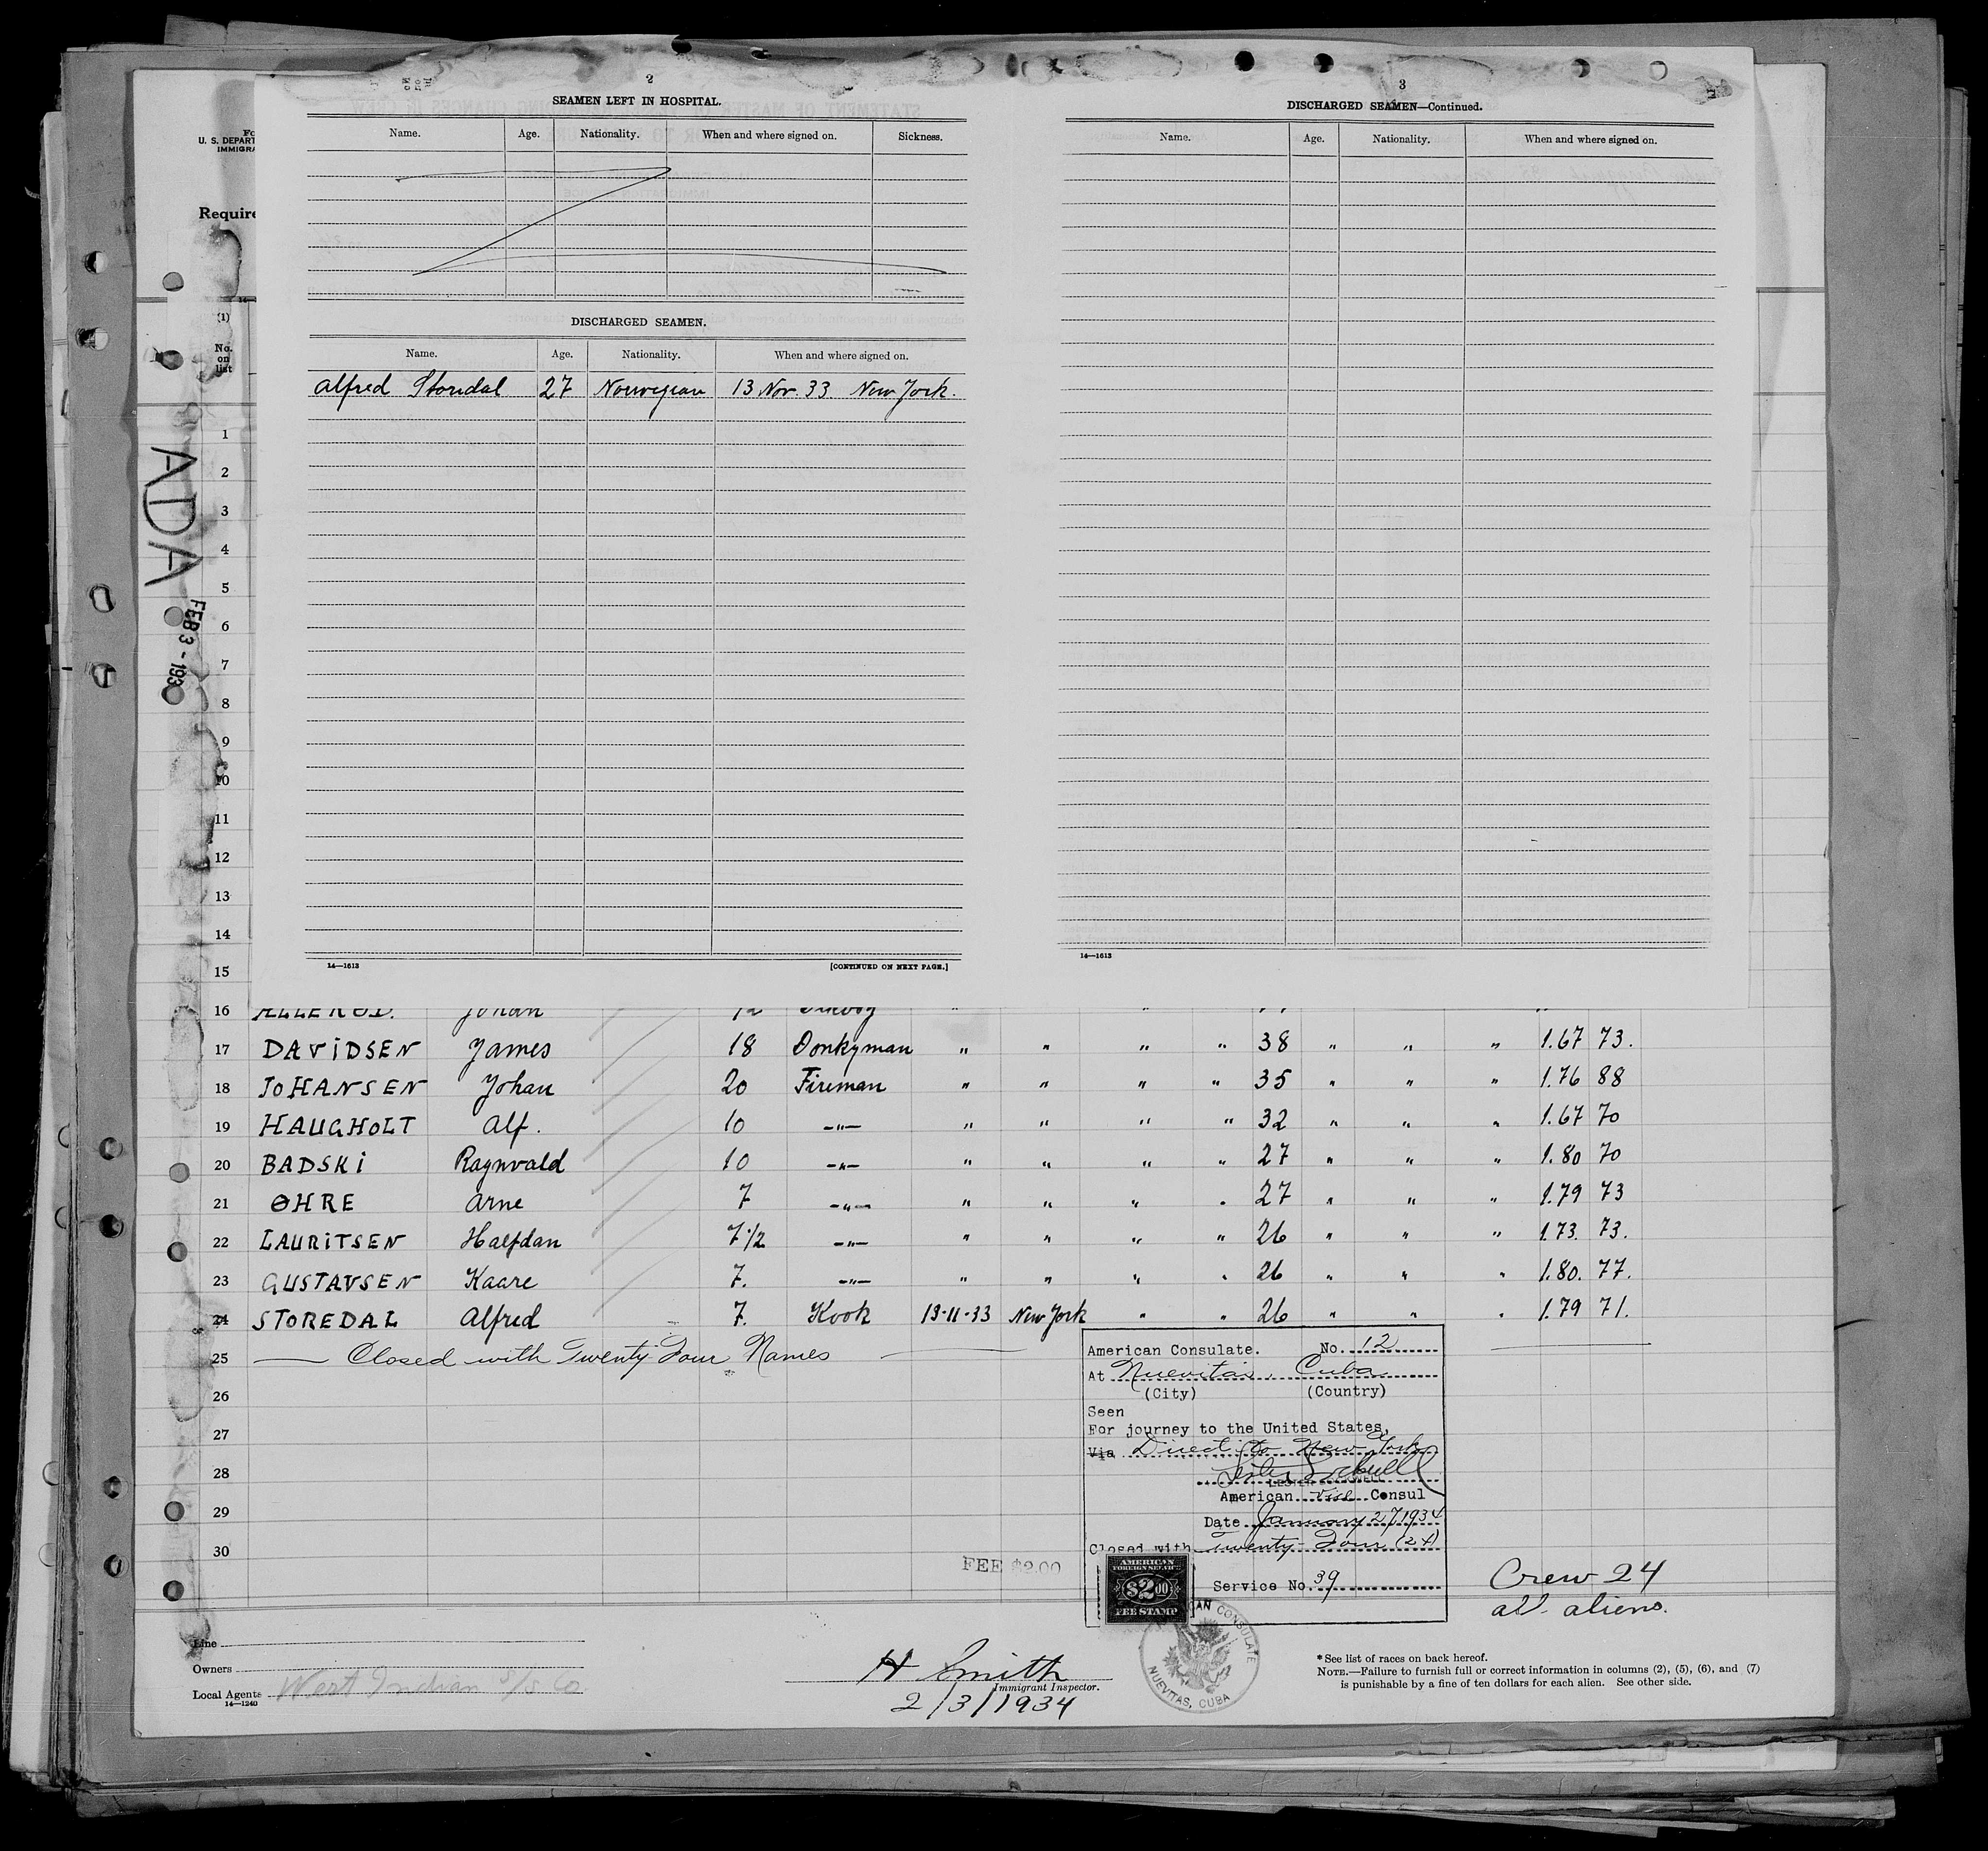 2
SEAMEN LEFT IN HOSPITAL.
Name. Age. Nationality. When and where signed on. Sickness.
DISCHARGED SEAMEN.
Name. Age. Nationality. When and where signed on.
Alfred Storedal 27 Norwegian 13 Nov. 33 New York.
14—1613 [CONTINUED ON NEXT PAGE.]
3
DISCHARGED SEAMEN—Continued.
Name. Age. Nationality. When and where signed on.
14—1613
U. S. DEPART
IMMIGRA
Require
(1)
No.
on
list
ADA
FEB 3 - 193
1
2
3
4
5
6
7
8
9
10
11
12
13
14
15
16 Johan
17 DAVIDSEN James 18 Donkyman " " " " 38 " " " 1.67 73.
18 JOHANSEN Johan 20 Fireman " " " " 35 " " " 1.76 88
19 HAUGHOLT Alf. 10 -"- " " " " 32 " " " 1.67 70
20 BADSKI Ragnvald 10 -"- " " " " 27 " " " 1.80 70
21 ØHRE Arne 7 -"- " " " " 27 " " " 1.79 73
22 LAURITSEN Halfdan 7 1/2 -"- " " " " 26 " " " 1.73. 73.
23 GUSTAVSEN Kaare 7. -"- " " " " 26 " " " 1.80. 77.
24 STOREDAL Alfred 7. Kook 13-11-33 New York " " 26 " " " 1.79 71.
25 Closed with Twenty Four Names
26
27
28
29
30
American Consulate. No. 12
At Nuevitas, Cuba
(City) (Country)
Seen
For journey to the United States,
Via Direct to New York
American Vice Consul
Date January 27 1934
Closed with Twenty-Four (24)
Service No. 39
FEE $2.00
AMERICAN
FOREIGN SERVICE
$2.00
FEE STAMP
AMERICAN CONSULATE
NUEVITAS, CUBA
Crew 24
all aliens.
Line
Owners
Local Agents West Indian S/S Co
14—1240
H Smith
Immigrant Inspector.
2/3/1934
*See list of races on back hereof.
NOTE.—Failure to furnish full or correct information in columns (2), (5), (6), and (7)
is punishable by a fine of ten dollars for each alien. See other side.